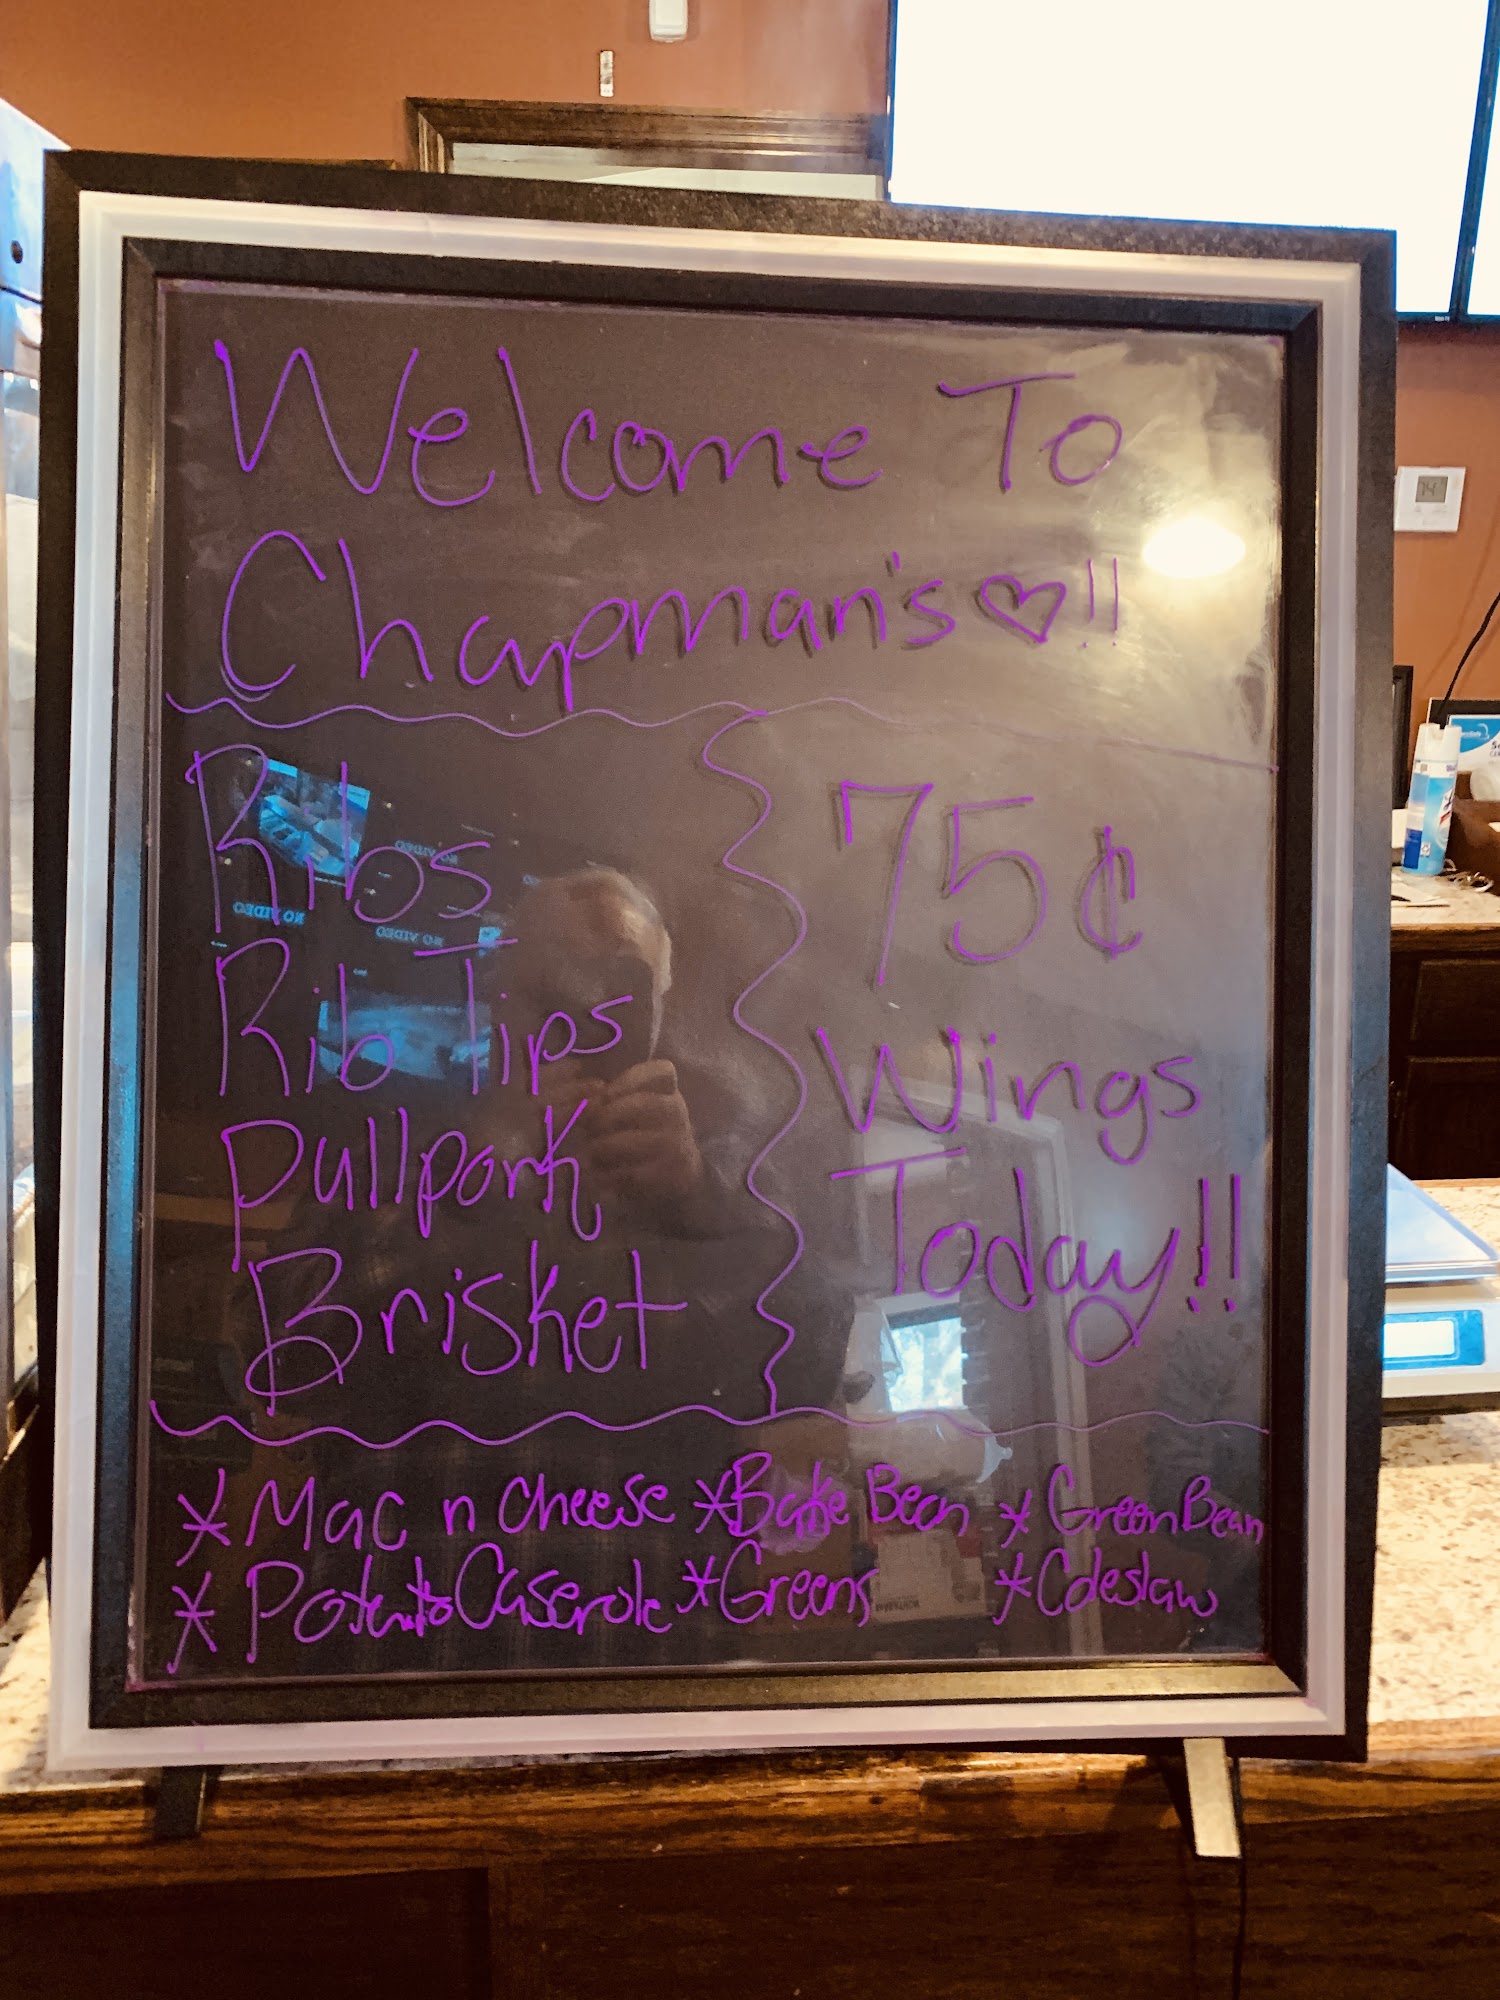 Welcome To
Chapman's ♡!!
Ribs
Rib Tips
Pullpork
Brisket
75¢
Wings
Today!!
* Mac n cheese * Bake Bean * Green Bean
* Potato Caserole * Greens * Coleslaw
NO VIDEO
NO VIDEO
NO VIDEO
74